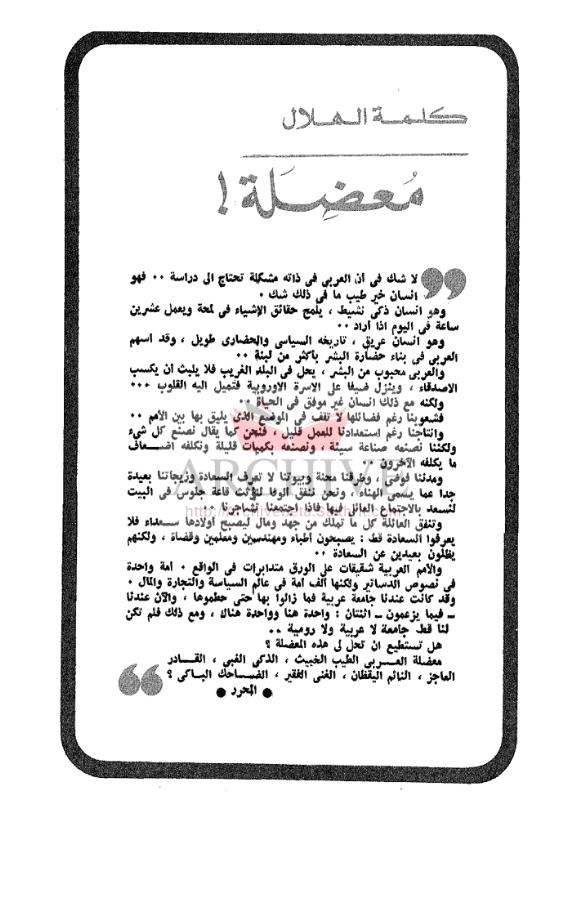 كلمة الهلال
مُعضِلَة !
لا شك فى أن العربى فى ذاته مشكلة تحتاج الى دراسة ٠٠ فهو
انسان خير طيب ما فى ذلك شك ٠
وهو انسان ذكى نشيط ، يلمح حقائق الاشياء فى لمحة ويعمل عشرين
ساعة فى اليوم اذا أراد ٠٠
وهو انسان عريق ، تاريخه السياسى والحضارى طويل ، وقد أسهم
العربى فى بناء حضارة البشر بأكثر من لبنة ٠٠
والعربى محبوب من البشر ، يحل فى البلد الغريب فلا يلبث أن يكسب
الاصدقاء ، وينزل ضيفا على الاسرة الاوروبية فتميل اليه القلوب ٠٠٠
ولكنه مع ذلك انسان غير موفق فى الحياة ٠٠
فشعوبنا رغم فضائلها لا تقف فى الموضع الذى يليق بها بين الأمم ٠٠
وانتاجنا رغم استعدادنا للعمل قليل ، فنحن كما يقال نصنع كل شىء
ولكننا نصنعه صناعة سيئة ، ونصنعه بكميات قليلة ونكلفه اضعاف
ما يكلفه الآخرون ٠٠
ومدننا فوضى ، وطرقنا محنة وبيوتنا لا تعرف السعادة وزيجاتنا بعيدة
جدا عما يسمى الهناء ، ونحن ننفق ألوفا لتؤثث قاعة جلوس فى البيت
لنسعد بالاجتماع العائلى فيها فاذا اجتمعنا تشاجرنا ٠٠
وتنفق العائلة كل ما تملك من جهد ومال ليصبح أولادها سعداء فلا
يعرفوا السعادة قط : يصبحون أطباء ومهندسين ومعلمين وقضاة ، ولكنهم
يظلون بعيدين عن السعادة ٠٠
والأمم العربية شقيقات على الورق متدابرات فى الواقع ٠ أمة واحدة
فى نصوص الدساتير ولكنها ألف أمة فى عالم السياسة والتجارة والمال ٠
وقد كانت عندنا جامعة عربية فما زالوا بها حتى حطموها ، والآن عندنا
ــ فيما يزعمون ــ اثنتان : واحدة هنا وواحدة هناك ، ومع ذلك فلم تكن
لنا قط جامعة لا عربية ولا رومية ٠٠
هل تستطيع ان تحل لى هذه المعضلة ؟
معضلة العربى الطيب الخبيث ، الذكى الغبى ، القادر
العاجز ، النائم اليقظان ، الغنى الفقير ، الضاحك الباكى ؟
● المحرر ●
ARCHIVE